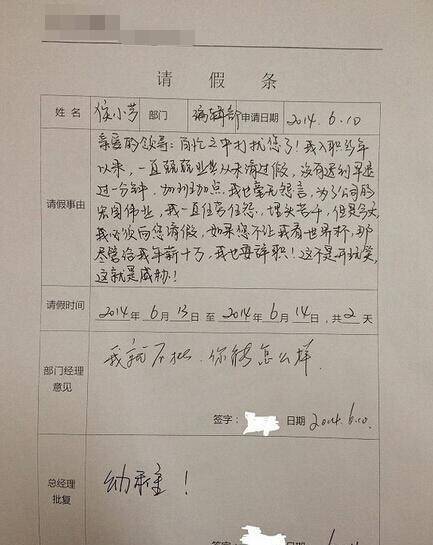 请假条
姓名 侯小芳 部门 编辑部 申请日期 2014.6.10
亲爱的领导:百忙之中打扰您了!我入职多年
以来,一直兢兢业业从未请过假,没有迟到早退
过一分钟,加班加点,我也毫无怨言,为了公司的
宏图伟业,我一直任劳任怨,埋头苦干,但是今天,
我必须向您请假,如果您不让我看世界杯,那
请假事由
尽管给我年薪十万,我也要辞职!这不是开玩笑,
这就是威胁!
请假时间 2014年6月13日至2014年6月14日,共2天
我就不批,你能怎么样
部门经理
意见
签字: 日期 2014.6.10
幼稚!
总经理
批复